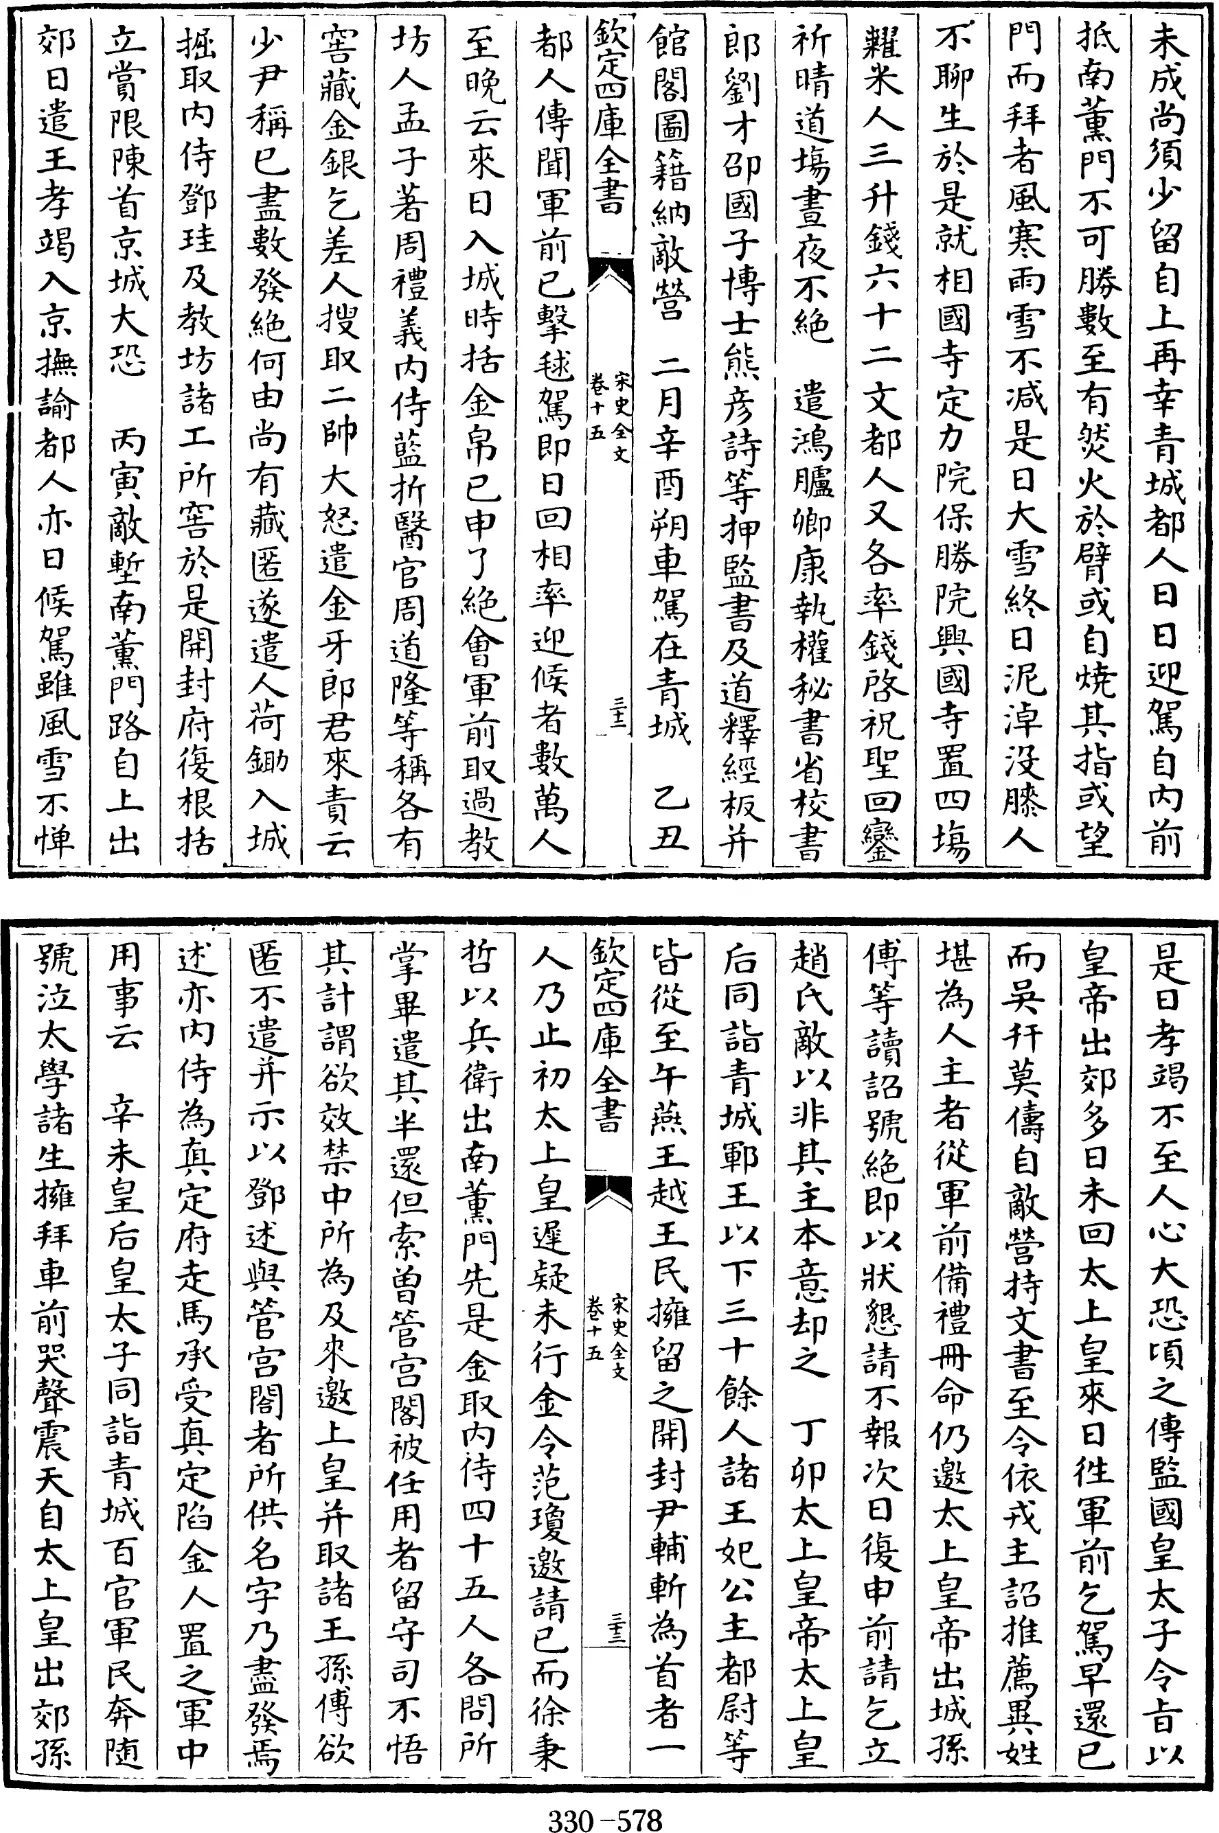 未成尚須少留自上再幸青城都人日日迎駕自内前
抵南薫門不可勝數至有焚火於臂或自燒其指或望
門而拜者風寒雨雪不减是日大雪終日泥淖没膝人
不聊生於是就相國寺定力院保勝院興國寺置四塲
糶米人三升錢六十二文都人又各率錢啓祝聖回鑾
祈晴道塲晝夜不絶　遣鴻臚卿康執權秘書省校書
郎劉才邵國子博士熊彦詩等押監書及道釋經板并
館閣圖籍納敵營　二月辛酉朔車駕在青城　乙丑
欽定四庫全書
宋史全文
卷十五
三十二
都人傳聞軍前已擊毬駕即日回相率迎候者數萬人
至晚云來日入城時括金帛已申了絶會軍前取過教
坊人孟子著周禮義内侍藍折醫官周道隆等稱各有
窖藏金銀乞差人搜取二帥大怒遣金牙郎君來責云
少尹稱已盡數發絶何由尚有藏匿遂遣人荷鋤入城
掘取内侍鄧珪及教坊諸工所窖於是開封府復根括
立賞限陳首京城大恐　丙寅敵塹南薫門路自上出
郊日遣王孝竭入京撫諭都人亦日候駕雖風雪不憚
是日孝竭不至人心大恐頃之傳監國皇太子令旨以
皇帝出郊多日未回太上皇來日徃軍前乞駕早還已
而吳幵莫儔自敵營持文書至令依戎主詔推薦異姓
堪為人主者從軍前備禮冊命仍邀太上皇帝出城孫
傅等讀詔號絶即以狀懇請不報次日復申前請乞立
趙氏敵以非其主本意却之　丁卯太上皇帝太上皇
后同詣青城鄆王以下三十餘人諸王妃公主都尉等
皆從至午燕王越王民擁留之開封尹輔斬為首者一
欽定四庫全書
宋史全文
卷十五
三十三
人乃止初太上皇遲疑未行金令范瓊邀請已而徐秉
哲以兵衛出南薫門先是金取内侍四十五人各問所
掌畢遣其半還但索曽管宫閣被任用者留守司不悟
其計謂欲效禁中所為及來邀上皇并取諸王孫傅欲
匿不遣并示以鄧述與管宫閣者所供名字乃盡發焉
述亦内侍為真定府走馬承受真定陷金人置之軍中
用事云　辛未皇后皇太子同詣青城百官軍民奔随
號泣太學諸生擁拜車前哭聲震天自太上皇出郊孫
330-578